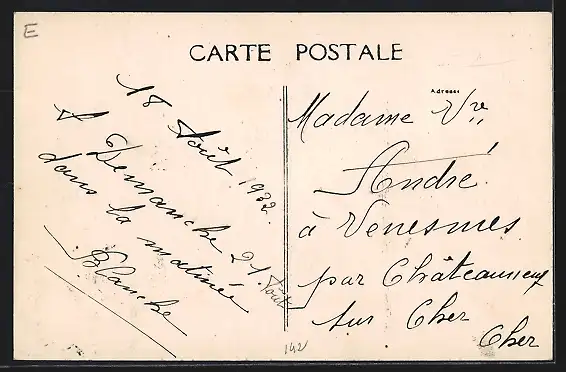 E
CARTE POSTALE
18 Août 1932
A Dimanche 21 Août
dans la matinée
Blanche
Adresse
Madame Vve
André
à Venesmes
par Châteauneuf
sur Cher
Cher
142